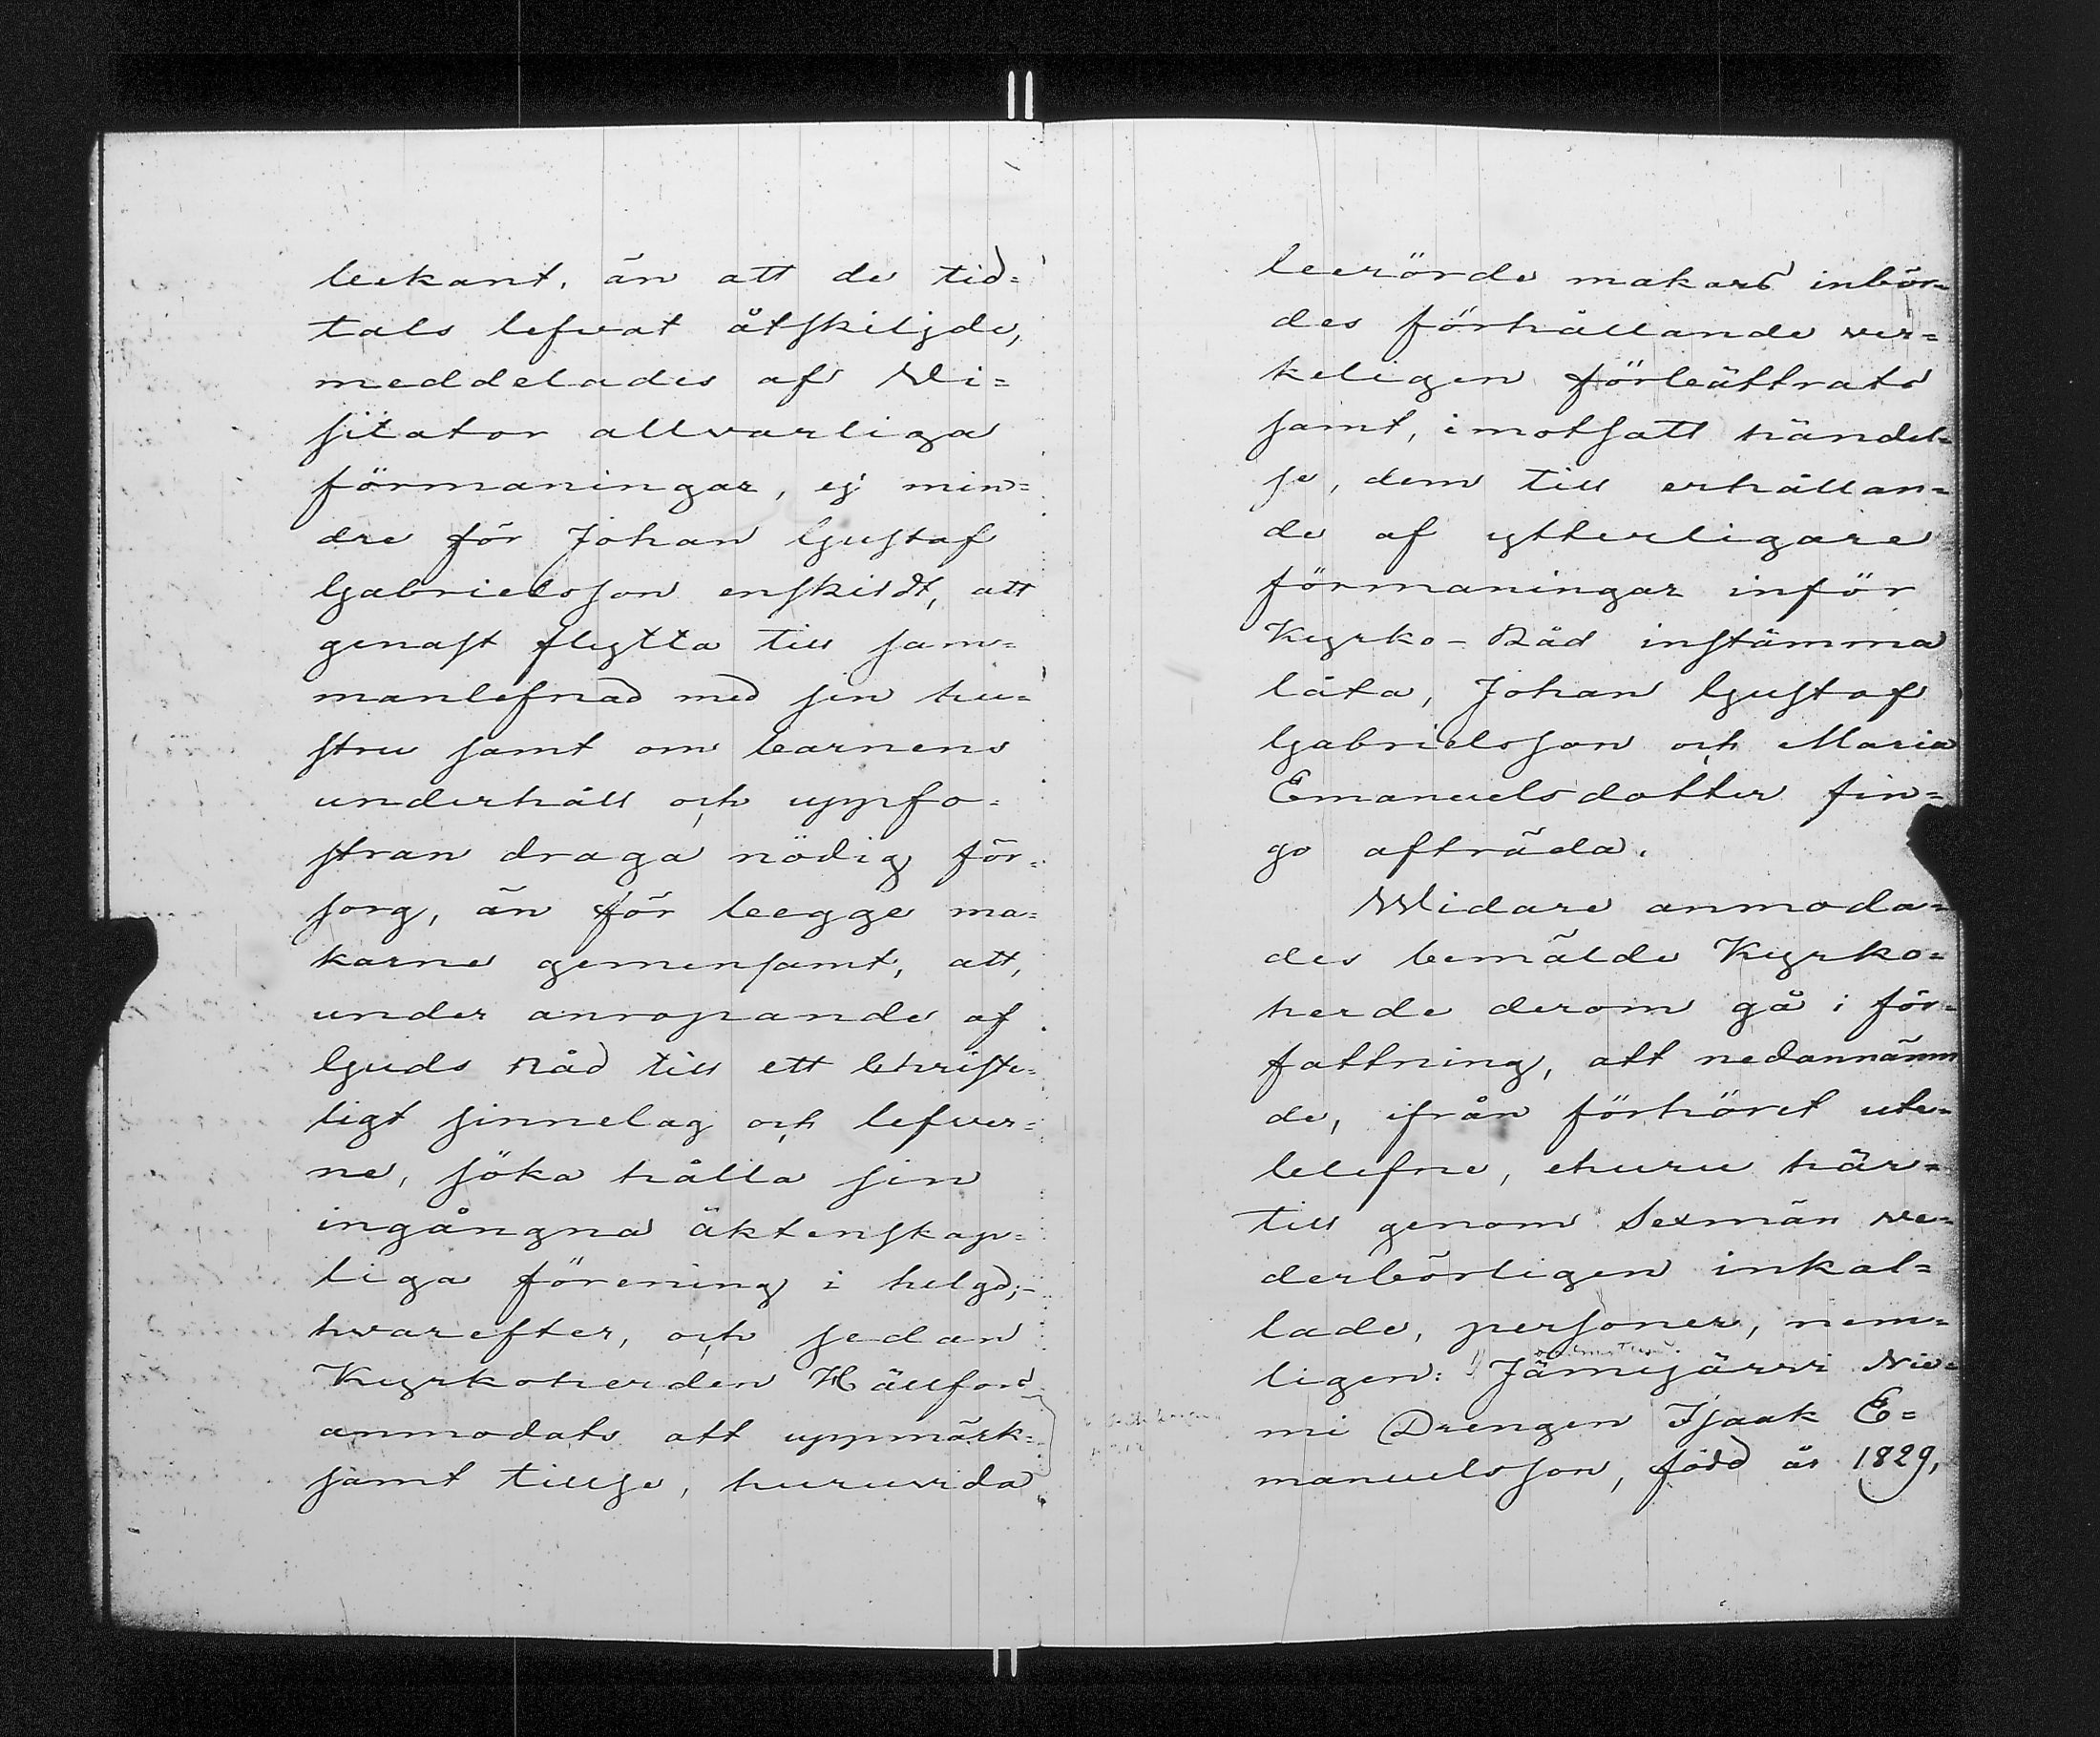 bekant, än att de tid=
tals lefvat åtskiljde,
meddelades af Vi=
sitator allvarliga
förmaningar, ej min=
dre för Johan Gustaf
Gabrielsson enskildt, att
genast flytta till sam=
manlefnad med sin hu=
stru samt om barnens
underhåll och uppfo=
stran draga nödig för=
sorg, än för begge ma=
karne gemensamt, att,
under anropande af
Guds nåd till ett Christe=
ligt sinnelag och lefver=
ne, söka hålla sin
ingångna äktenskap=
liga förening i helgd;-
hvarefter, och sedan
Kyrkoherden Hällfors
anmodats att uppmärk=
samt tillse, huruvida
berörde makars inbör=
des förhållande ver=
keligen förbättrats
samt, i motsatt händel=
se, dem till erhållan=
de af ytterligare
förmaningar inför
Kyrko-Råd instämma
låta, Johan Gustaf
Gabrielsson och Maria
Emanuelsdotter fin=
go afträda.
Widare anmoda=
des bemälde Kyrko=
herde derom gå i för=
fattning, att nedannämn
de, ifrån förhöret ute=
blefne, ehuru här=
till genom Sexmän ve=
derbörligen inkal=
lade, personer, nem=
ligen: Jämijärvi Nie=
mi Drengen Isaak E=
manuelsson, född år 1829,